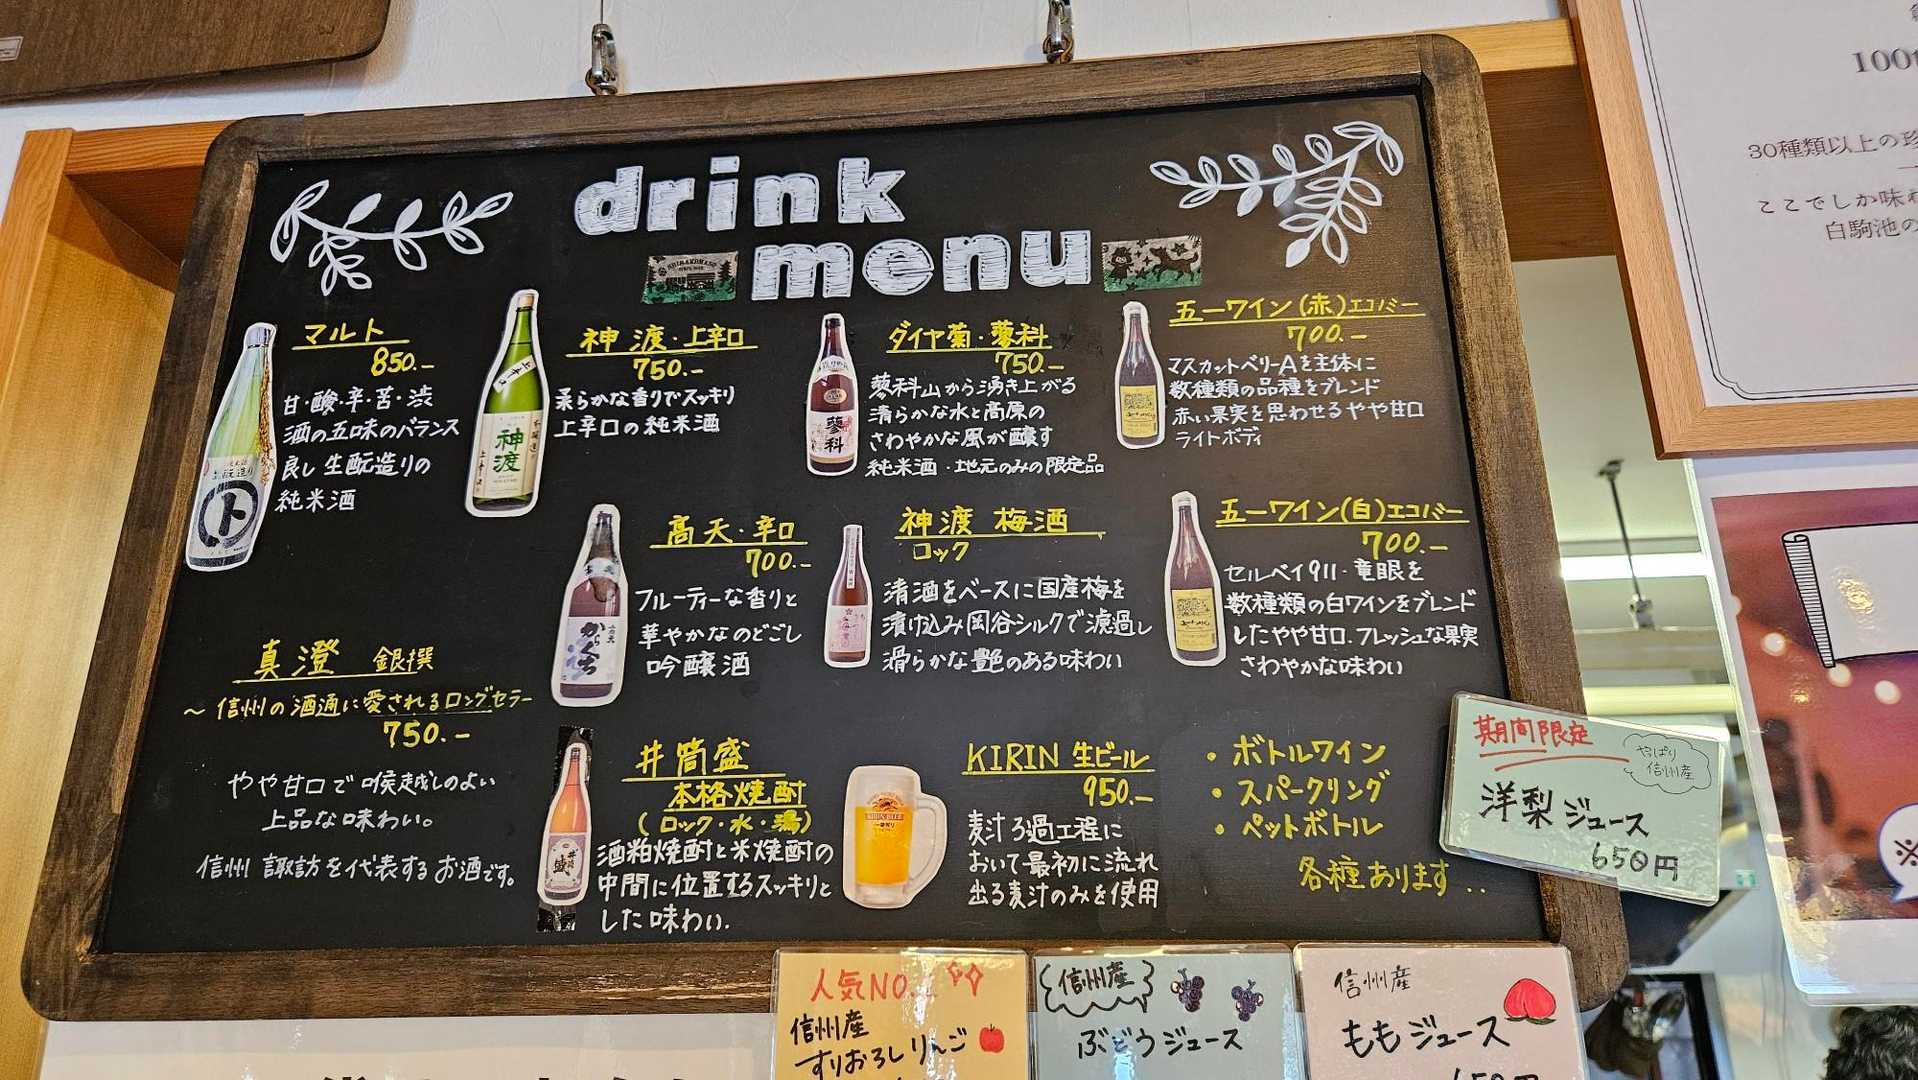 drink
menu
マルト
850.-
甘・酸・辛・苦・渋
酒の五味のバランス
良し生酛造りの
純米酒
神渡・上辛口
750.-
柔らかな香りでスッキリ
上辛口の純米酒
ダイヤ菊・蓼科
750.-
蓼科山から湧き上がる
清らかな水と高原の
さわやかな風が醸す
純米酒・地元のみの限定品
五一ワイン(赤)エコノミー
700.-
マスカットベリーAを主体に
数種類の品種をブレンド
赤い果実を思わせるやや甘口
ライトボディ
高天・辛口
700.-
フルーティーな香りと
華やかなのどごし
吟醸酒
神渡 梅酒
ロック
清酒をベースに国産梅を
漬け込み岡谷シルクで濾過し
滑らかな艶のある味わい
五一ワイン(白)エコノミー
700.-
セルベイ911・竜眼を
数種類の白ワインをブレンド
したやや甘口.フレッシュな果実
さわやかな味わい
真澄 銀撰
〜信州の酒通に愛されるロングセラー
750.-
やや甘口で喉越しのよい
上品な味わい。
信州 諏訪を代表するお酒です。
井筒盛
本格焼酎
(ロック・水・湯)
酒粕焼酎と米焼酎の
中間に位置するスッキリと
した味わい.
KIRIN 生ビール
950.-
麦汁ろ過工程に
おいて最初に流れ
出る麦汁のみを使用
・ボトルワイン
・スパークリング
・ペットボトル
各種あります..
期間限定
やっぱり
信州産
洋梨ジュース
650円
人気NO.
信州産
すりおろしりんご
信州産
ぶどうジュース
信州産
ももジュース
神渡
蓼科
からくち
30種類以上の珍
ここでしか味わ
白駒池の
※